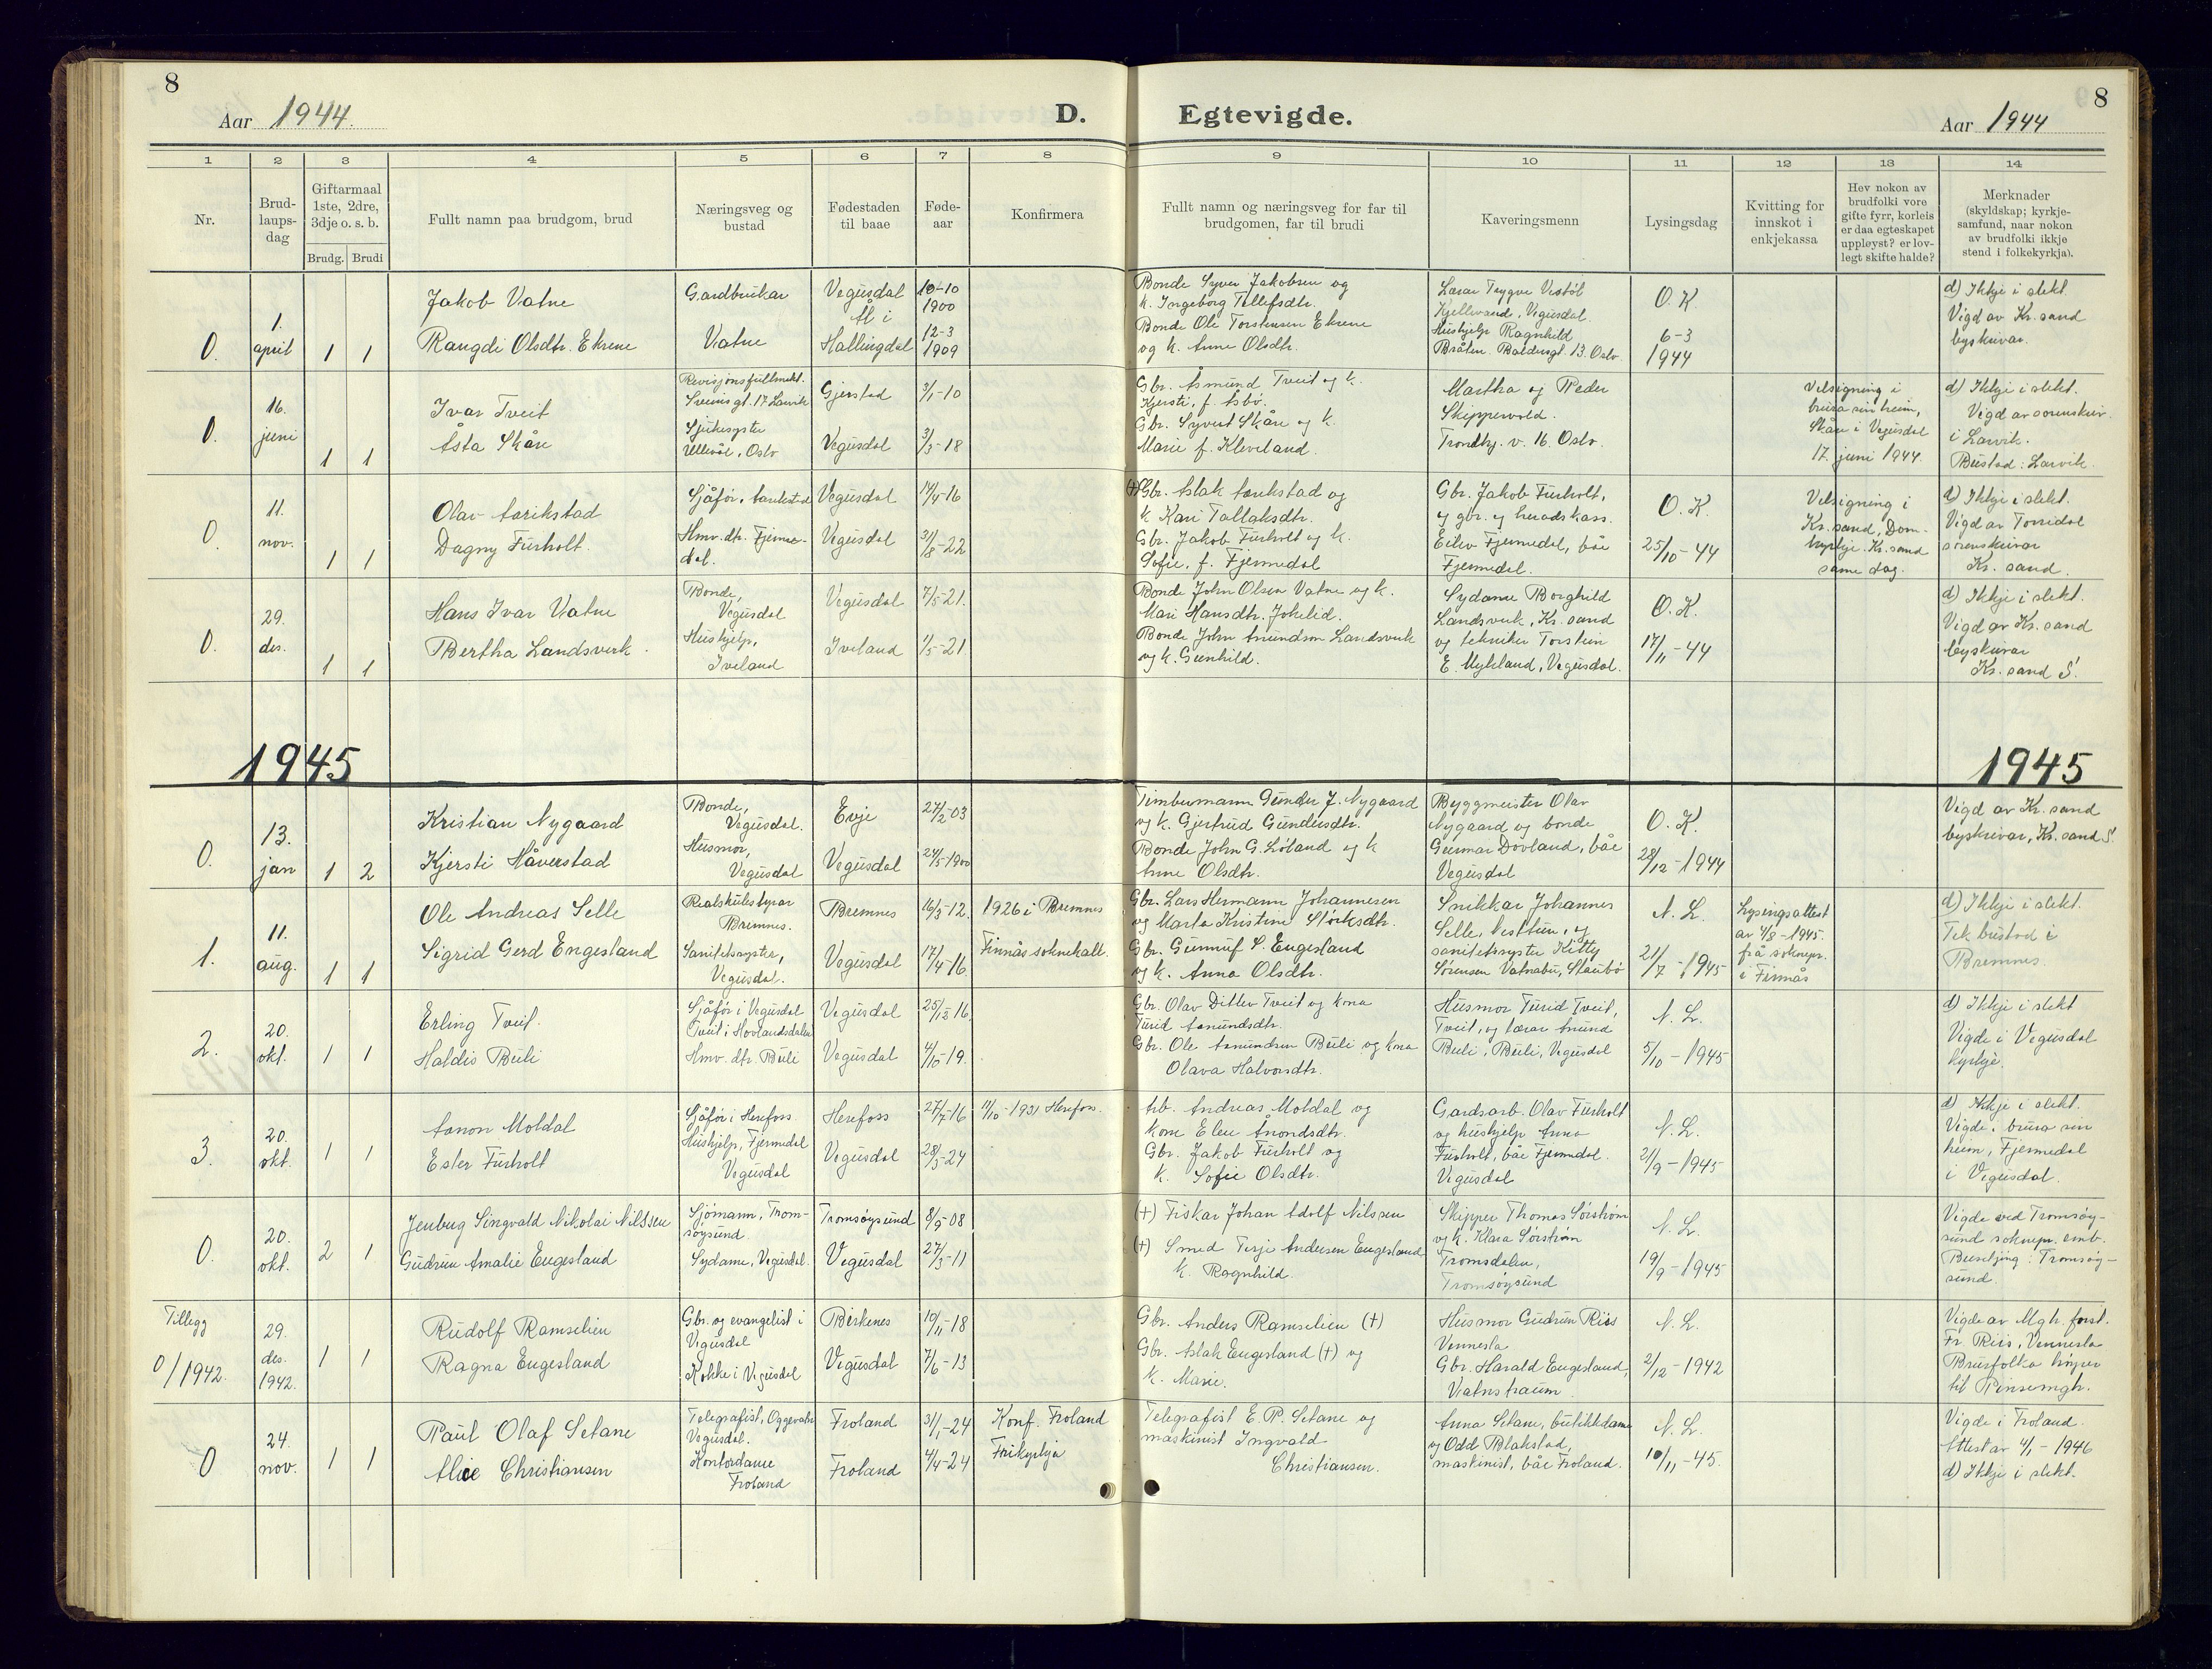 8
Aar 1944.
D.
Egtevigde.
Aar 1944
8
1 2 3 4 5 6 7 8 9 10 11 12 13 14
Nr.
Brud-
laups-
dag
Giftarmaal
1ste, 2dre,
3dje o. s. b.
Brudg. Brudi
Fullt namn paa brudgom, brud
Næringsveg og
bustad
Fødestaden
til baae
Føde-
aar
Konfirmera
Fullt namn og næringsveg for far til
brudgomen, far til brudi
Kaveringsmenn
Lysingsdag
Kvitting for
innskot i
enkjekassa
Hev nokon av
brudfolki vore
gifte fyrr, korleis
er daa egteskapet
uppløyst? er lov-
legt skifte halde?
Merknader
(skyldskap; kyrkje-
samfund, naar nokon
av brudfolki ikkje
stend i folkekyrkja).
0.
1.
april
1 1
Jakob Vatne
Rangdi Olsdtr. Ekrene
Gardbrukar
Vatne
Vegusdal
Ål i
Hallingdal
10-10
1900
12-3
1909
Bonde Syver Jakobsen og
k. Ingeborg Tellefsdtr.
Bonde Ole Torstensen Ekrene
og k. Anne Olsdtr.
Lærar Trygve Vestøl
Kjellevand, Vegusdal.
Hushjelp Ragnhild
Bråten. Baldersgt. 13. Oslo.
O. K.
6-3
1944
d) Ikkje i slekt.
Vigd av Kr.sand
byskrivar.
0.
16.
juni
1 1
Ivar Tveit
Åsta Skåre
Revisjonsfullmekt.
Sveinsgt. 17 Larvik
Sjukesyster
Ullevål, Oslo
Gjerstad
Vegusdal
3/1-10
3/3-18
Gbr. Åsmund Tveit og k.
Kjersti, f. Åsbø.
Gbr. Syvert Skåre og k.
Marie f. Kleveland.
Martha og Peder
Skippervold.
Trondhj. v. 16. Oslo.
Velsigning i
brura sin heim,
Skåre i Vegusdal
17. juni 1944.
d) Ikkje i slekt.
Vigd av sorenskriv.
i Larvik.
Bustad: Larvik.
0.
11.
nov.
1 1
Olav Aarikstad
Dagny Furholt.
Sjåfør, Aarikstad
Hmv. dtr. Fjerme-
dal.
Vegusdal
Vegusdal
14/4-16
31/8-22
(+) Gbr. Aslak Aarikstad og
k Kari Tallaksdtr.
Gbr. Jakob Furholt og k.
Sofie, f. Fjermedal
Gbr. Jakob Furholt,
og gbr. og heradskass.
Eilev Fjermedal, båe
Fjermedal.
O. K.
25/10-44
Velsigning i
Kr.sand, Dom-
kyrkje. Kr.sand
same dag.
d) Ikkje i slekt.
Vigd av Torridal
sorenskrivar
Kr. sand.
0.
29.
des.
1 1
Hans Ivar Vatne
Bertha Landsverk.
Bonde,
Vegusdal
Hushjelp,
Iveland
Vegusdal
Iveland
7/5-21.
1/5-21
Bonde John Olsen Vatne og k.
Mari Hansdtr. Jokelid.
Bonde John Anundson Landsverk
og k. Gunhild.
Sydame Borghild
Landsverk, Kr.sand
og tekniker Torstein
E. Mykland, Vegusdal.
O. K.
17/11-44
d) Ikkje i slekt.
Vigd av Kr. sand
byskrivar
Kr. sand S.
1945
1945
0.
13.
jan
1 2
Kristian Nygaard
Kjersti Håverstad
Bonde,
Vegusdal.
Husmor,
Vegusdal
Evje
Vegusdal
27/2-03
24/5-1900
Timbermann Gunder J. Nygaard
og k. Gjertrud Gundersdtr.
Bonde John G. Løland og k
Anne Olsdtr.
Byggmeister Olav
Nygaard og bonde
Gunnar Dovland, båe
Vegusdal
O. K.
28/12-1944
Vigd av Kr. sand
byskrivar, Kr. sand S.
1.
11.
aug.
1 1
Ole Andreas Selle
Sigrid Gerd Engesland
Realskulestyrar
Bremnes.
Sanitetssyster,
Vegusdal.
Bremnes
Vegusdal
16/3-12.
17/4-16
1926 i Bremnes
Finnås soknekall.
Gbr. Lars Hermann Johannesen
og Marta Kristine Størksdtr.
Gbr. Gunnuf S. Engesland
og k. Anna Olsdtr.
Snikkar Johannes
Selle, Nesttun, og
sanitetssyster Kitty
Sørensen Vatnabu, Staubø
N. L.
21/7-1945
Lysingsattest
av 4/8-1945.
frå soknepr.
i Finnås
d) Ikkje i slekt.
Tek bustad i
Bremnes.
2.
20.
okt.
1 1
Erling Tveit.
Haldis Beuli
Sjåfør i Vegusdal
Tveit i Hovlandsdalen
Hmv. dtr. Beuli
Vegusdal
Vegusdal
25/12-16
4/10-19.
Gbr. Olav Ditlev Tveit og kona
Turid Aanundsdtr.
Gbr. Ole Aanundsen Beuli og kona
Olava Halvorsdtr.
Husmor Turid Tveit,
Tveit, og lærar Anund
Beuli, Beuli, Vegusdal
N. L.
5/10-1945
d) Ikkje i slekt
Vigde i Vegusdal
kyrkje.
3.
20.
okt.
1 1
Aanon Moldal
Ester Furholt
Sjåfør i Herefoss
Hushjelp, Fjermedal
Vegusdal
Herefoss
Vegusdal
27/7-16
28/5-24
11/10-1931 Herefoss.
Arb. Andreas Moldal og
kone Elen Ånondsdtr.
Gbr. Jakob Furholt og
k. Sofie Olsdtr.
Gardsarb. Olav Furholt
og hushjelp Anna
Furholt, båe Fjermedal.
Vegusdal
N. L.
21/9-1945
d) Ikkje i slekt.
Vigde i brura sin
heim, Fjermedal
i Vegusdal.
0.
20.
okt.
2 1
Jenbug Singvald Nikolai Nilssen
Gudrun Amalie Engesland
Sjømann, Trom-
søysund
Sydame, Vegusdal.
Tromsøysund
Vegusdal
8/9-08
27/3-11
(+) Fiskar Johan Adolf Nilssen
(+) Smed Terje Andersen Engesland
k. Ragnhild
Skipper Thomas Sørstrøm
og k. Klara Sørstrøm
Tromsdalen,
Tromsøysund
N. L.
19/9-1945
Vigde ved Tromsøy-
sund soknepr. emb.
Busetjing: Tromsøy-
sund.
Tillegg
0/1942.
29.
des.
1942.
1 1
Rudolf Ramselien
Ragna Engesland
Gbr. og evangelist i
Vegusdal
Kokke i Vegusdal
Birkenes
Vegusdal
19/11-18
7/6-13
Gbr. Anders Ramselien (+)
Gbr. Aslak Engesland (+) og
k. Marie.
Husmor Gudrun Riis
Vennesla
Gbr. Harald Engesland,
Vatnstraum.
N. L.
2/12-1942
Vigde av Mgh. forst.
Fr. Riis, Vennesla
Brurfolka høyrer
til Pinsemgh.
0
24.
nov.
1 1
Paul Olaf Setane
Alice Christiansen
Telegrafist, Oggevatn
Vegusdal.
Kontordame
Froland
Froland
Froland
31/1-24
4/4-24
Konf. Froland
Frikyrkja
Telegrafist E. P. Setane og
maskinist Ingvald
Christiansen.
Anna Setane, butikkdame
og Odd Blakstad,
maskinist, båe Froland.
N. L.
10/11-45.
Vigde i Froland.
Attest av 4/1-1946
d) Ikkje i slekt.